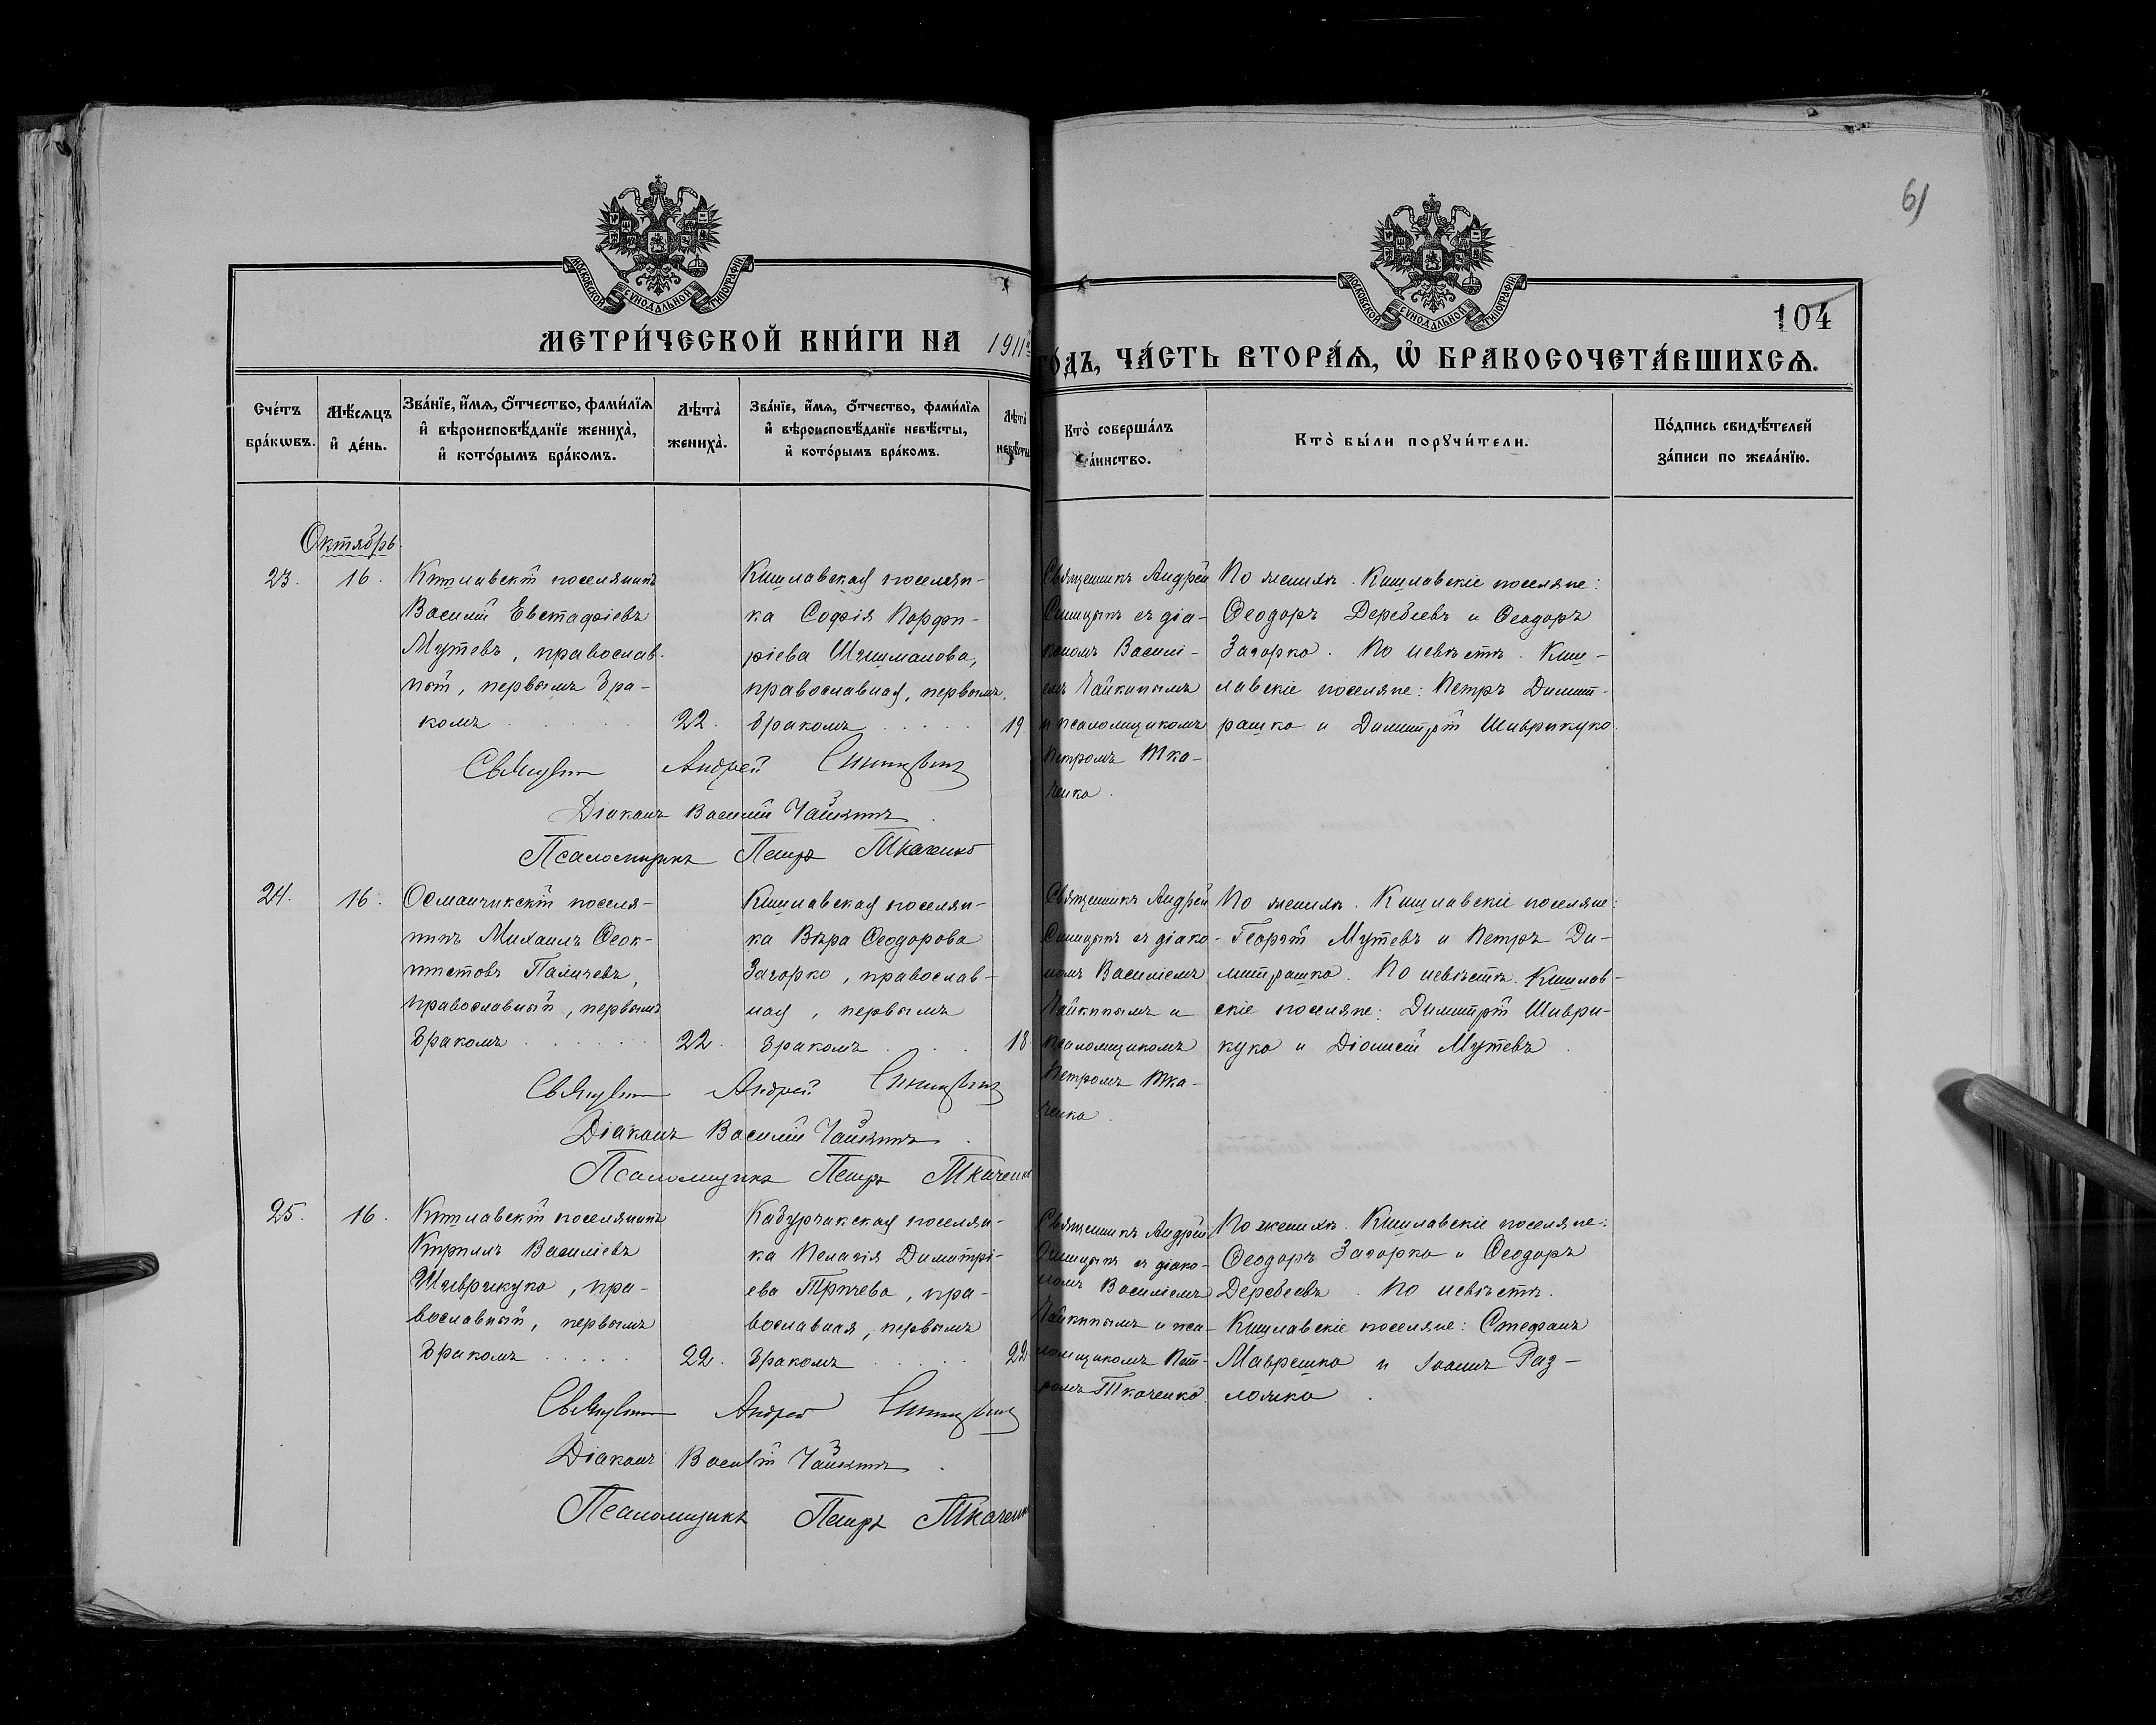 61
МОСКОВСКОЙ СѴНОДАЛЬНОЙ ТИПОГРАФІИ
МОСКОВСКОЙ СѴНОДАЛЬНОЙ ТИПОГРАФІИ
104
МЕТРИ́ЧЕСКОЙ КНИ́ГИ НА 1911й
ГО́ДЪ, ЧА́СТЬ ВТОРА́Ѧ, Ѽ БРАКОСОЧЕТА́ВШИХСѦ.
Сче́тъ бра́кѡвъ.
Мѣ́сѧцъ и҆ де́нь.
Зва́нїе, и҆́мѧ, ѻ҆́тчество, фами́лїѧ
и҆ вѣроисповѣ́данїе жениха̀,
и҆ кото́рымъ бра́комъ.
Лѣта̀ жениха̀.
Зва́нїе, и҆́мѧ, ѻ҆́тчество, фами́лїѧ
и҆ вѣроисповѣ́данїе невѣ́сты,
и҆ кото́рымъ бра́комъ.
Лѣта̀ невѣ́сты
Кто̀ соверша́лъ
та́инство.
Кто̀ бы́ли порꙋчи́тели.
По́дпись свидѣ́телей
за́писи по жела́нїю.
Октябрь.
23. 16. Кишлавскій поселянинъ
Василій Евстафіевъ
Мутевъ, православ-
ный, первымъ бра-
комъ 22.
Кишлавская поселян-
ка Софія Порфи-
ріева Шишманова,
православная, первымъ
бракомъ 19.
Священникъ Андрей
Синицынъ съ діа-
кономъ Василі-
емъ Чайкинымъ
и псаломщикомъ
Петромъ Тка-
ченко.
По женихѣ. Кишлавскіе поселяне:
Ѳеодоръ Деребеевъ и Ѳеодоръ
Загорко. По невѣстѣ. Киш-
лавскіе поселяне: Петръ Димит-
рашко и Димитрій Шаврикуко.
Андрей Синицынъ
Діаконъ Василій Чайкинъ.
Псаломщикъ Петръ Ткаченко
24. 16. Османчикскій поселя-
нинъ Михаилъ Ѳеок-
тистовъ Паличевъ,
православный, первымъ
бракомъ 22.
Кишлавская поселян-
ка Вѣра Ѳеодорова
Загорко, православ-
ная, первымъ
бракомъ 18
Священникъ Андрей
Синицынъ съ діако-
номъ Василіемъ
Чайкинымъ и
псаломщикомъ
Петромъ Тка-
ченко.
По женихѣ. Кишлавскіе поселяне:
Георгій Мутевъ и Петръ Ди-
митрашко. По невѣстѣ. Кишлав-
скіе поселяне: Димитрій Шаври-
куко и Діонисій Мутевъ.
Андрей Синицынъ
Діаконъ Василій Чайкинъ.
Псаломщикъ Петръ Ткаченко
25. 16. Кишлавскій поселянинъ
Кириллъ Василіевъ
Шаврикуко, пра-
вославный, первымъ
бракомъ 22.
Кабурчакская поселян-
ка Пелагія Димитрі-
ева Тричева, пра-
вославная, первымъ
бракомъ 22
Священникъ Андрей
Синицынъ съ діако-
номъ Василіемъ
Чайкинымъ и пса-
ломщикомъ Пет-
ромъ Ткаченко.
По женихѣ. Кишлавскіе поселяне:
Ѳеодоръ Загорко и Ѳеодоръ
Деребеевъ. По невѣстѣ.
Кишлавскіе поселяне: Стефанъ
Маврешко и Іоаннъ Раз-
ложко.
Андрей Синицынъ
Діаконъ Василій Чайкинъ.
Псаломщикъ Петръ Ткаченко